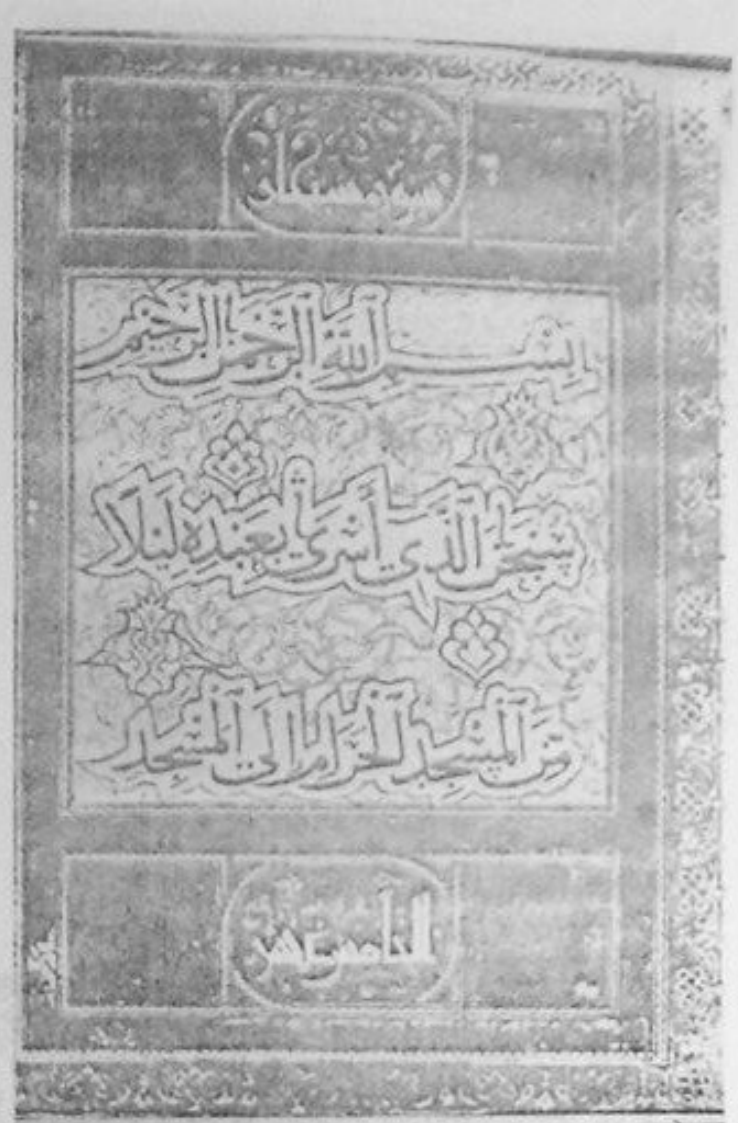 سورة سبحان
بِسْمِ اللَّهِ الرَّحْمَنِ الرَّحِيمِ
سُبْحَنَ الَّذِي أَسْرَى بِعَبْدِهِ لَيْلًا
مِنَ الْمَسْجِدِ الْحَرَامِ إِلَى الْمَسْجِدِ
الخامس عشر